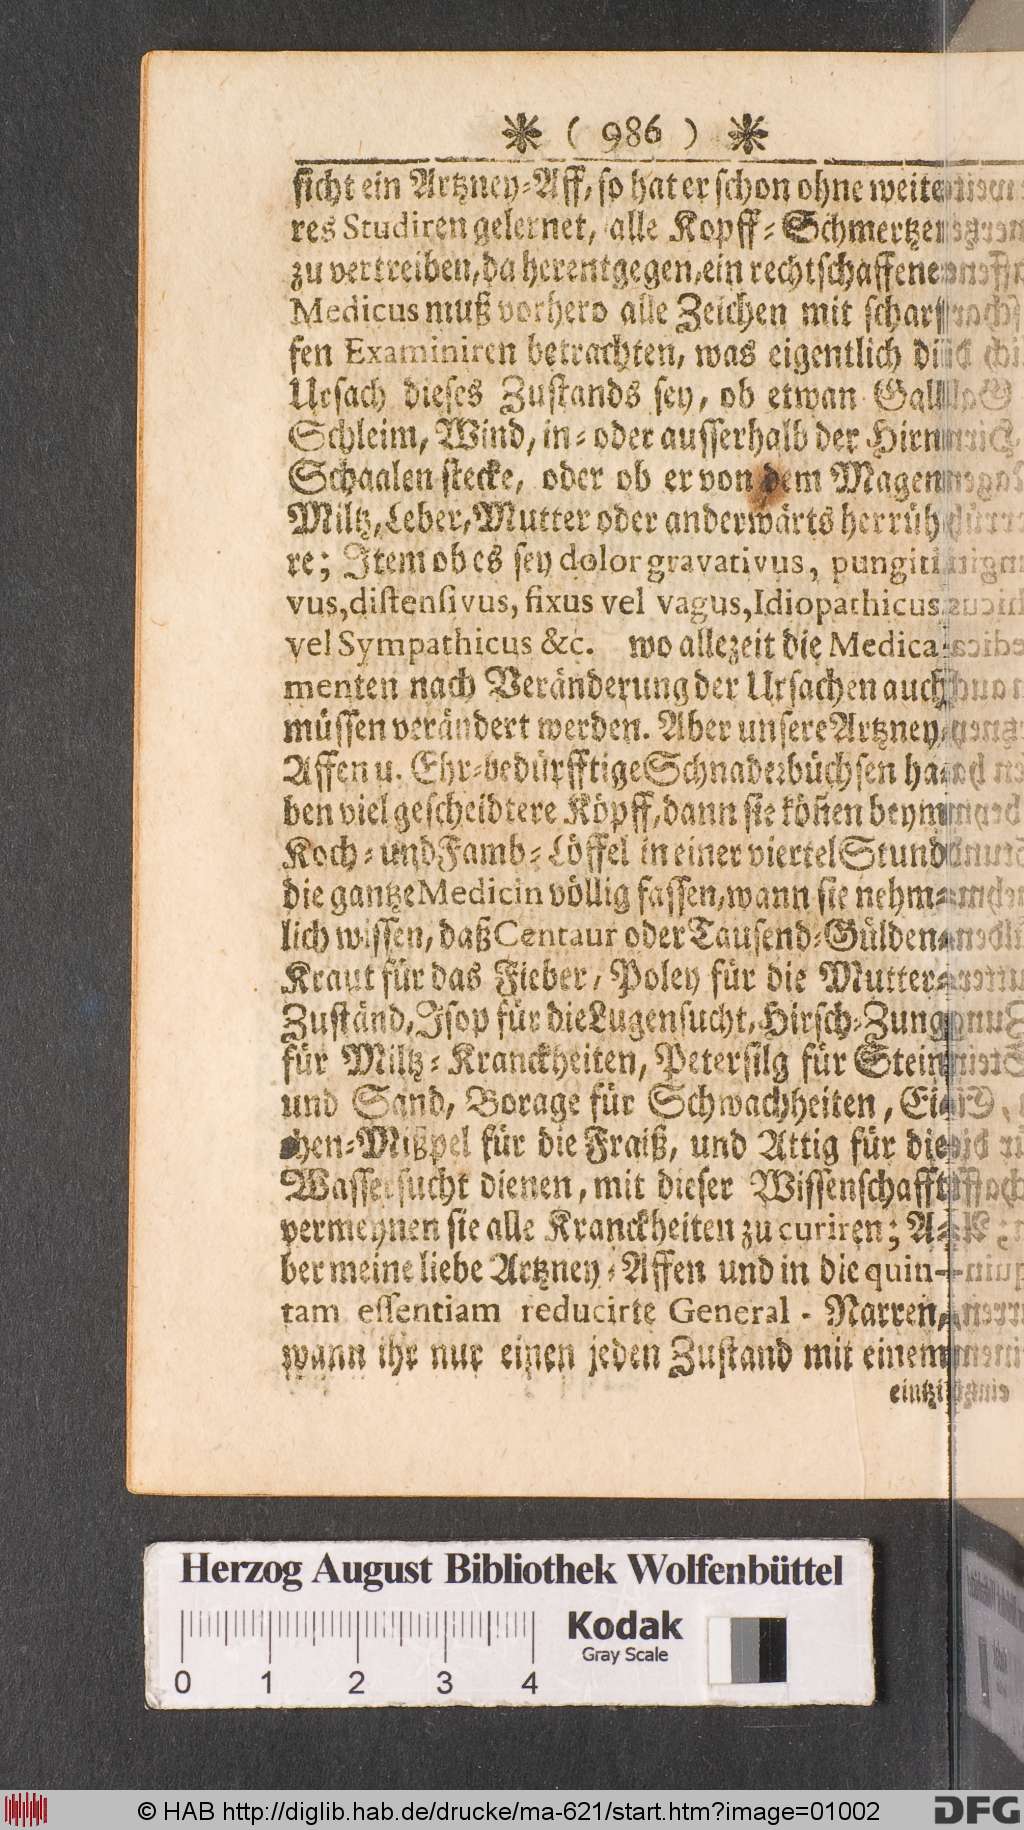 * ( 986 ) *
sicht ein Artzney-Aff, so hat er schon ohne weite-
res Studiren gelernet, alle Kopff-Schmertzen
zu vertreiben, da herentgegen, ein rechtschaffener
Medicus muß vorhero alle Zeichen mit scharf-
fen Examiniren betrachten, was eigentlich die
Ursach dieses Zustands sey, ob etwan Gall,
Schleim, Wind, in- oder ausserhalb der Hirn-
Schaalen stecke, oder ob er von dem Magen,
Miltz, Leber, Mutter oder anderwärts herrüh-
re; Item ob es sey dolor gravativus, pungiti-
vus, distensivus, fixus vel vagus, Idiopathicus
vel Sympathicus &c. wo allezeit die Medica-
menten nach Veränderung der Ursachen auch
müssen verändert werden. Aber unsere Artzney-
Affen u. Ehr-bedürfftige Schnaderbüchsen ha-
ben viel gescheidtere Köpff, dann sie köñen beym
Koch- und Famb-Löffel in einer viertel Stund
die gantze Medicin völlig fassen, wann sie nehm-
lich wissen, daß Centaur oder Tausend-Gülden-
Kraut für das Fieber, Poley für die Mutter-
Zuständ, Isop für die Lugensucht, Hirsch-Zung
für Miltz-Kranckheiten, Petersilg für Stein
und Sand, Borage für Schwachheiten, Ei-
chen-Mißpel für die Fraiß, und Attig für die
Wassersucht dienen, mit dieser Wissenschafft
vermeynen sie alle Kranckheiten zu curiren; A-
ber meine liebe Artzney-Affen und in die quin-
tam essentiam reducirte General-Narren,
wann ihr nur einen jeden Zustand mit einem
eintzi-
Herzog August Bibliothek Wolfenbüttel
Kodak
Gray Scale
0 1 2 3 4
© HAB http://diglib.hab.de/drucke/ma-621/start.htm?image=01002
DFG